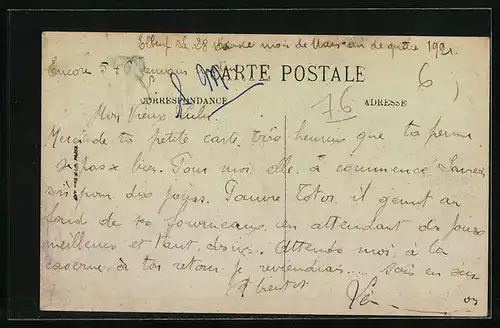 Elbeuf le 28 mois de Mars an de guerre 192
Encore 5 + 6
CARTE POSTALE
6
CORRESPONDANCE
76
ADRESSE
Mon Vieux Lulu
Merci de ta petite carte. très heureux que ta perme
se passe bien. Pour moi elle à commencé Samedi
soir pour dix jours. Pauvre Totor, il gémit au
fond de ses fourneaux, en attendant des jours
meilleurs et tant désirés. Attends moi à la
caserne, à ton retour je reviendrai.... sois en sûr
A bientot